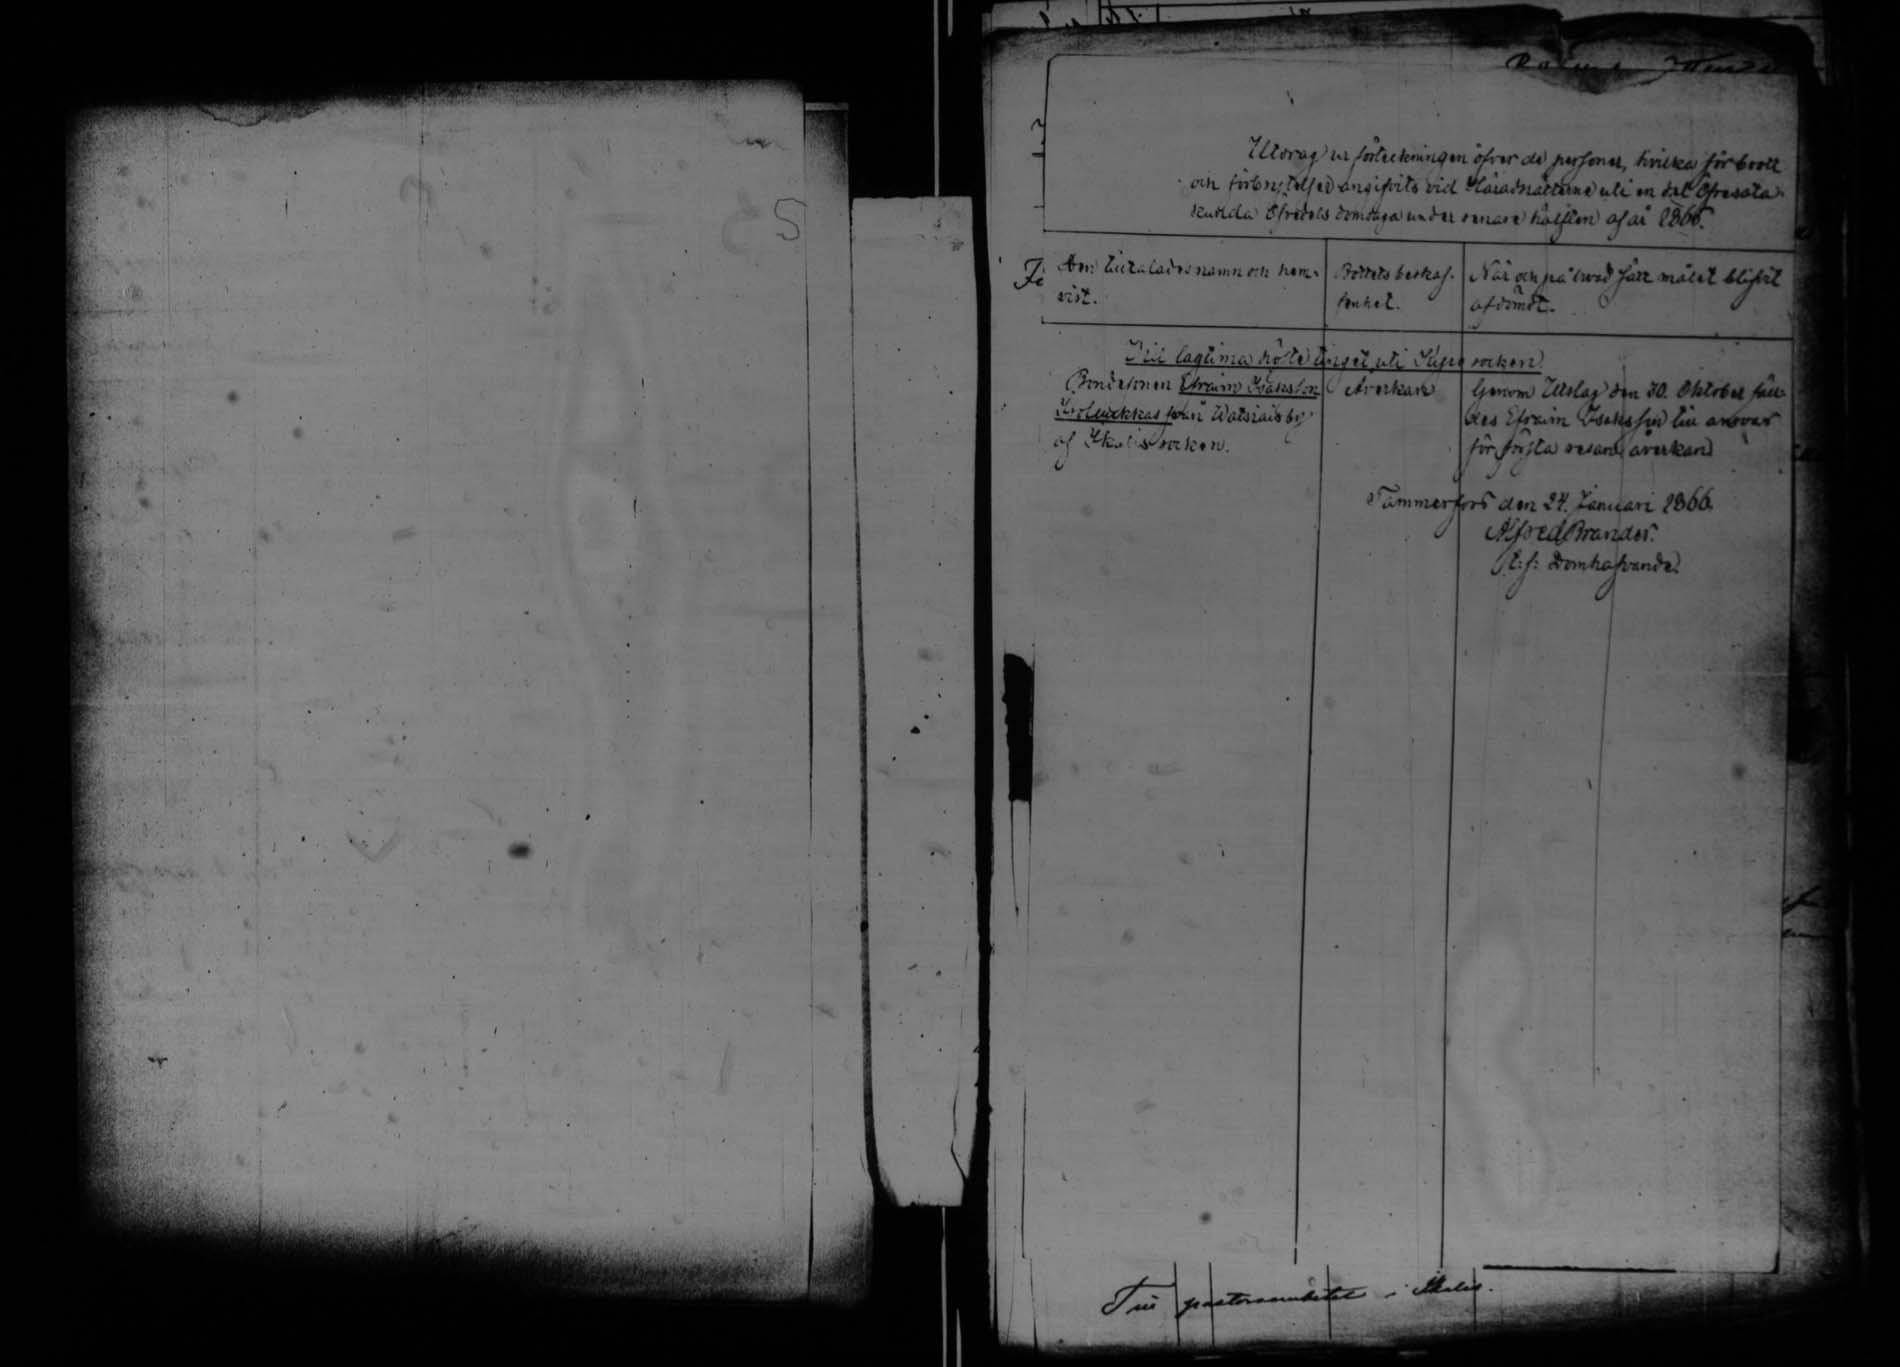 Utdrag ur förteckningen öfver de personer, hvilka för brott
och förbrytelser angifvits vid Häradsrätterne uti en del Öfresata-
kunda Öfredels domsaga under senare hälften af år 1865.
Den tilltalades namn och hem-
vist.
Brottets beskaf-
fenhet.
När och på hvad sätt målet blifvit
afdömdt.
Vid lagtima höstetinget uti socken.
Bondesonen Efraim Isaksson
från by
af Ikalis socken.
Åverkan
Genom Utslag den 30. Oktober fäll-
des Efraim Isaksson till ansvar
för första resan åverkan
Tammerfors den 24. Januari 1866.
Alfred Brander.
t. f. Domhafvande.
Till pastorsembetet i Ikalis.